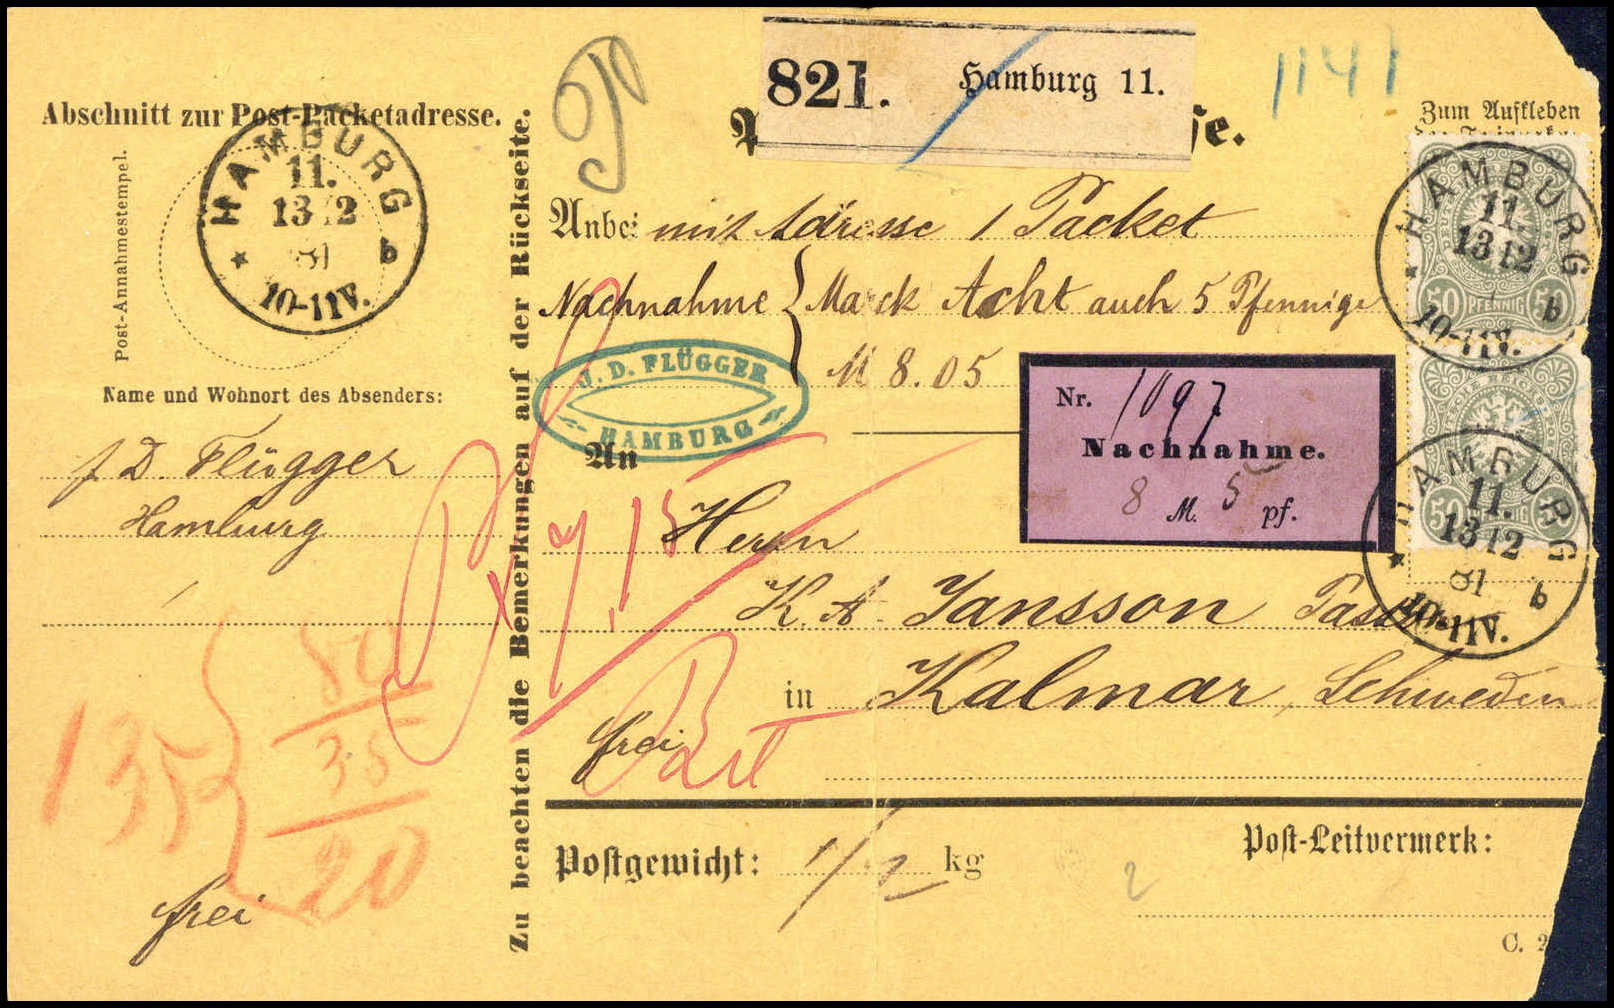 821. Hamburg 11.
1141
Abschnitt zur Post-Packetadresse.
Post-Annahmestempel.
HAMBURG
11.
13 12
81
* b
10-11V.
Name und Wohnort des Absenders:
J. D. Flügger
Hamburg
135
80
35
20
frei
Zu beachten die Bemerkungen auf der Rückseite.
se.
Zum Aufkleben
Anbei mit Adresse 1 Packet
Nachnahme { Marck Acht auch 5 Pfennige
M 8.05
J. D. FLÜGGER
HAMBURG
Nr. 1097
Nachnahme.
8 M. 5 pf.
HAMBURG
11.
13 12
* b
10-11V.
50 PFENNIG 50
HAMBURG
11.
13 12
81
* b
10-11V.
50 PFENNIG
An
Herrn
K. A. Jansson
in Kalmar, Schweden
frei
Postgewicht: 1/2 kg
2
Post-Leitvermerk:
C. 2